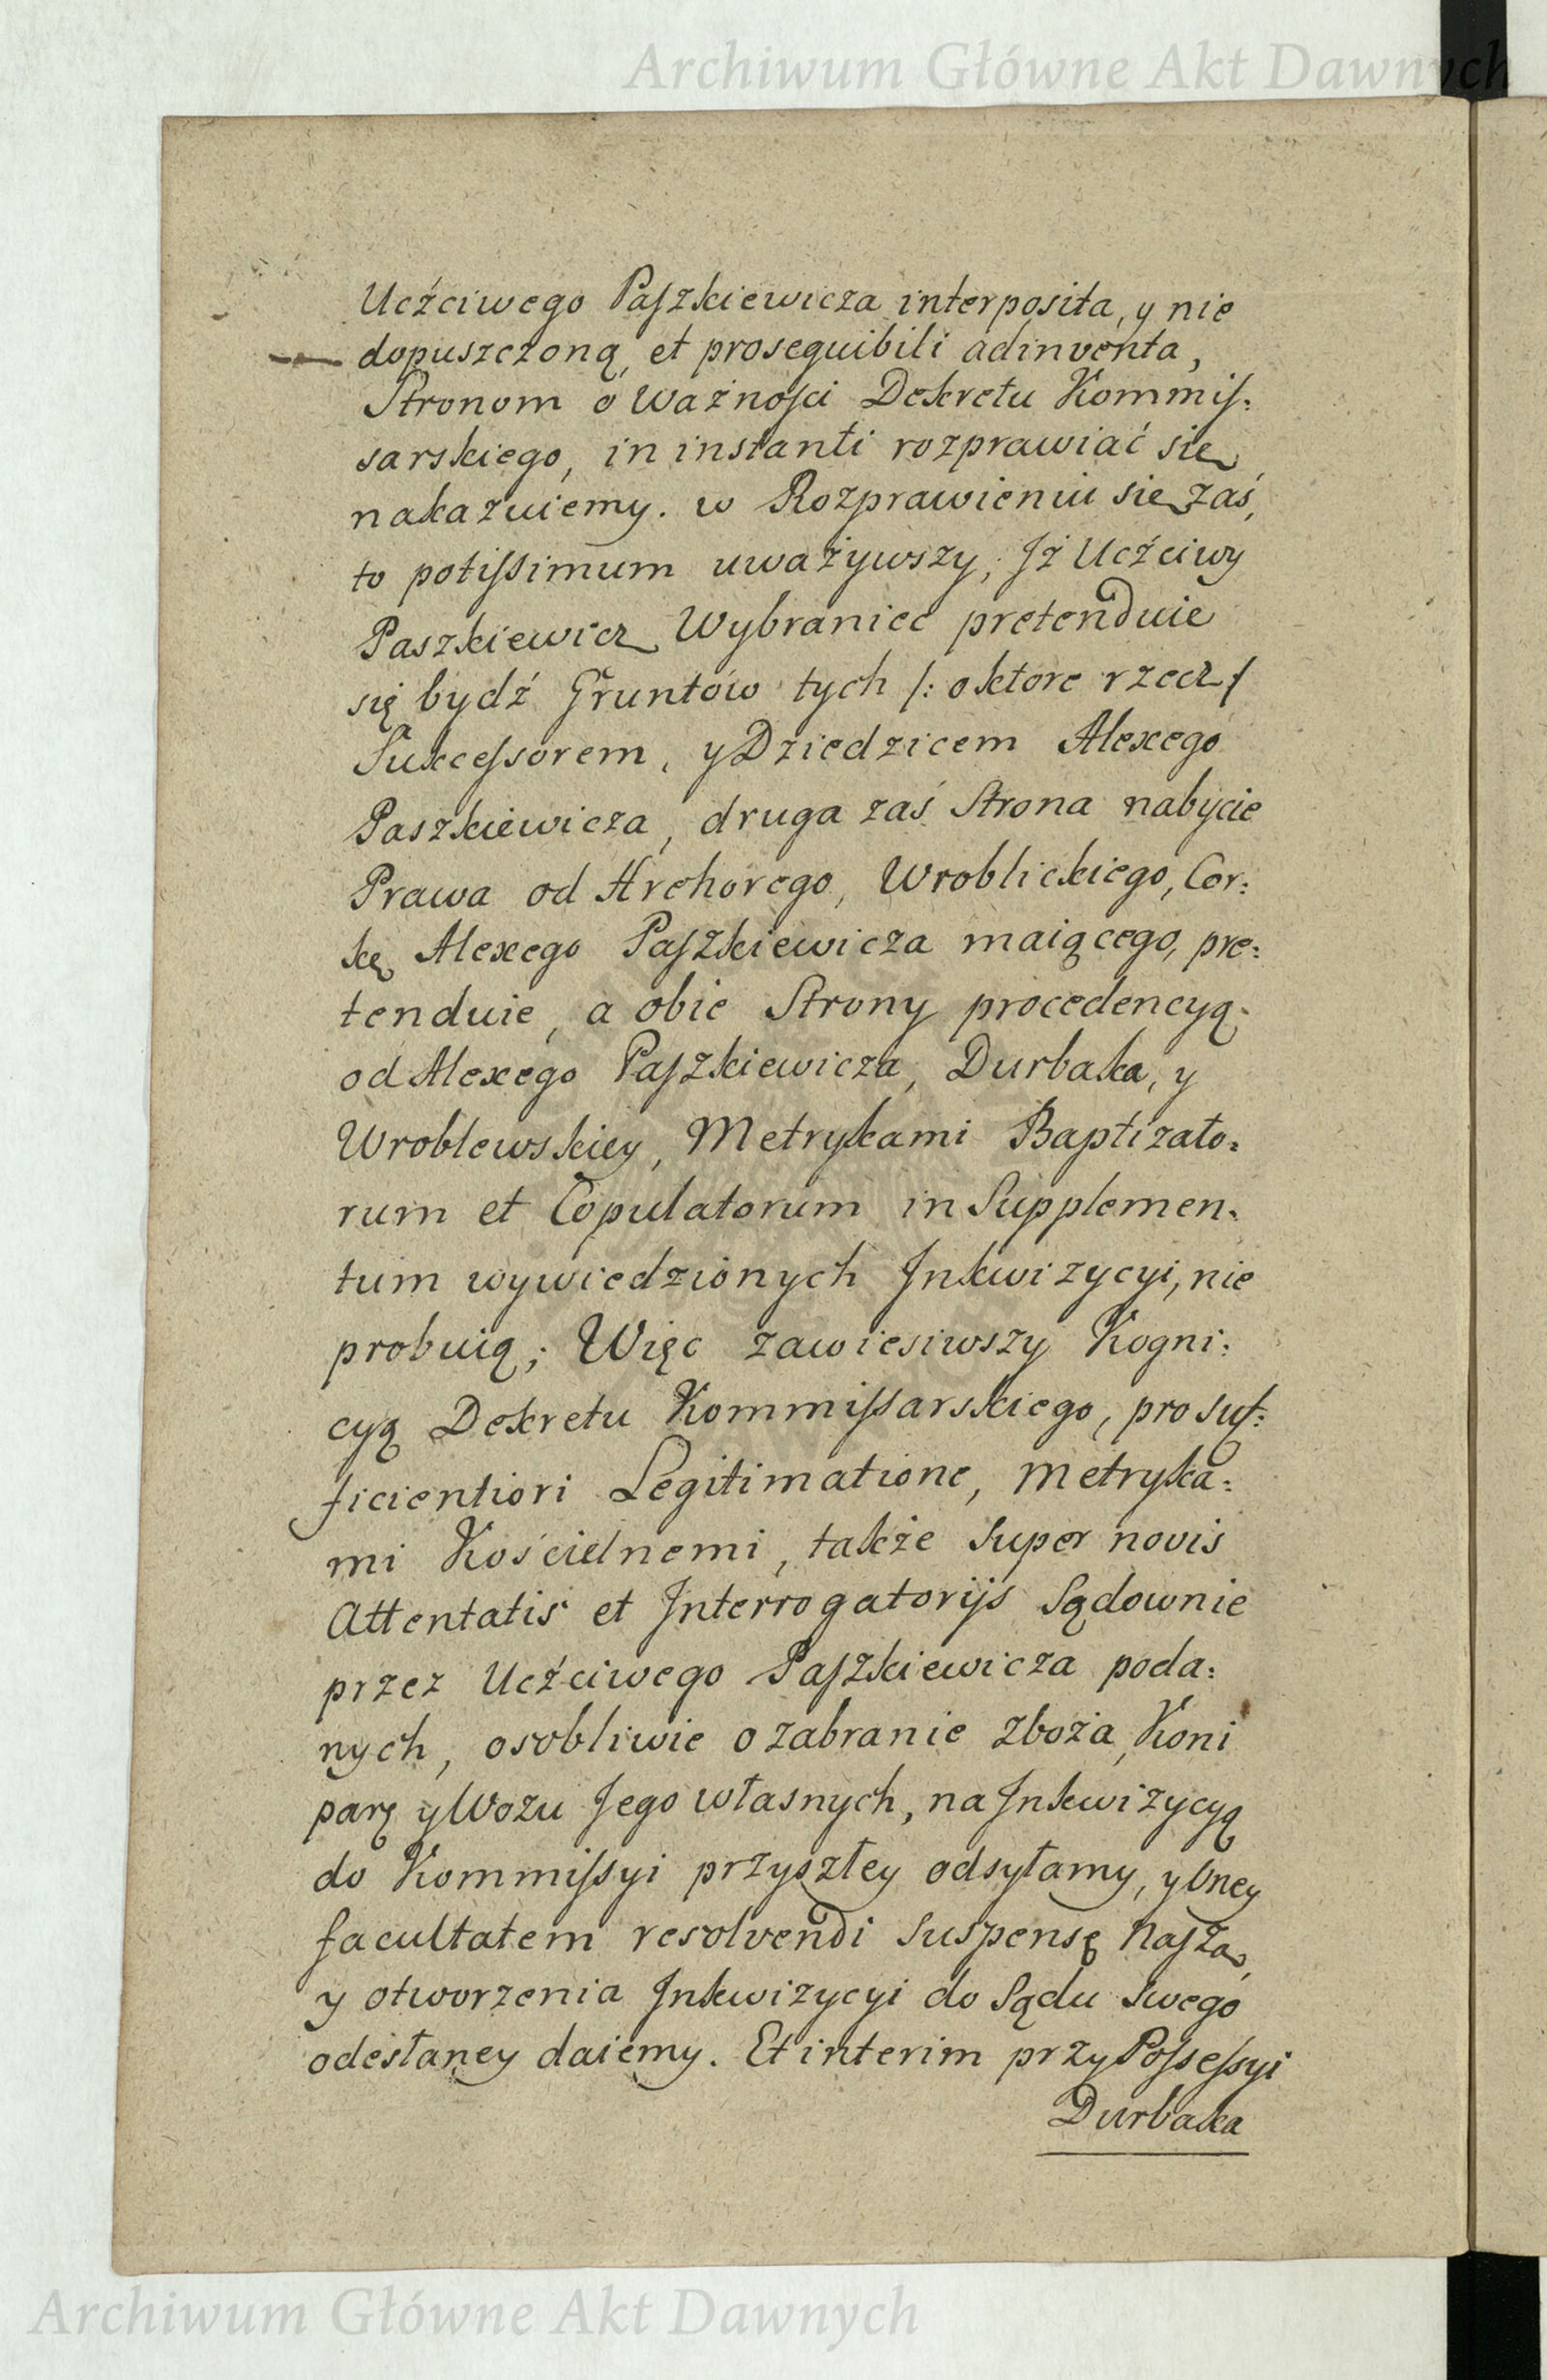 Archiwum Główne Akt Dawnych
Ucźciwego Paſzkiewicza interposita, y nie
dopuszczoną, et proseguibili adinventa,
Stronom o Ważnoſci Dekretu Kommiſ:
sarskiego, in instanti rozprawiać się
nakazuiemy. w Rozprawieniu się zaś,
to potiſsimum uważywszy, Jż Ucźciwy
Paszkiewicz Wybraniec pretenduie
się bydź Gruntów tych /: o ktore rzecz /
Sukceſsorem, y Dziedzicem Alexego
Paszkiewicza, druga zaś Strona nabycie
Prawa od Hrehorego, Wroblickiego, Cor:
kę Alexego Paſzkiewicza maiącego, pre:
tenduie, a obie Strony procedencyą
od Alexego Paſzkiewicza, Durbaka, y
Wroblewskiey, Metrykami Baptizato:
rum et Copulatorum in Supplemen:
tum wywiedzionych Jnkwizycyi, nie
probuią; Więc zawiesiwszy Kogni:
cyą Dekretu Kommiſsarskiego, pro suf:
ficientiori Legitimatione, Metryka:
mi Kościelnemi, także super novis
Attentatis et Jnterrogatorijs Sądownie
przez Ucźciwego Paſzkiewicza poda:
nych, osobliwie o zabranie zboża, Koni
parę y Wozu Jego własnych, na Jnkwizycyą
do Kommiſsyi przyszłey odsyłamy, y Oney
facultatem resolvendi suspensę Naſzą,
y otworzenia Jnkwizycyi do Sądu swego
odesłaney daiemy. Et interim przy Poſseſsyi
Durbaka
Archiwum Główne Akt Dawnych